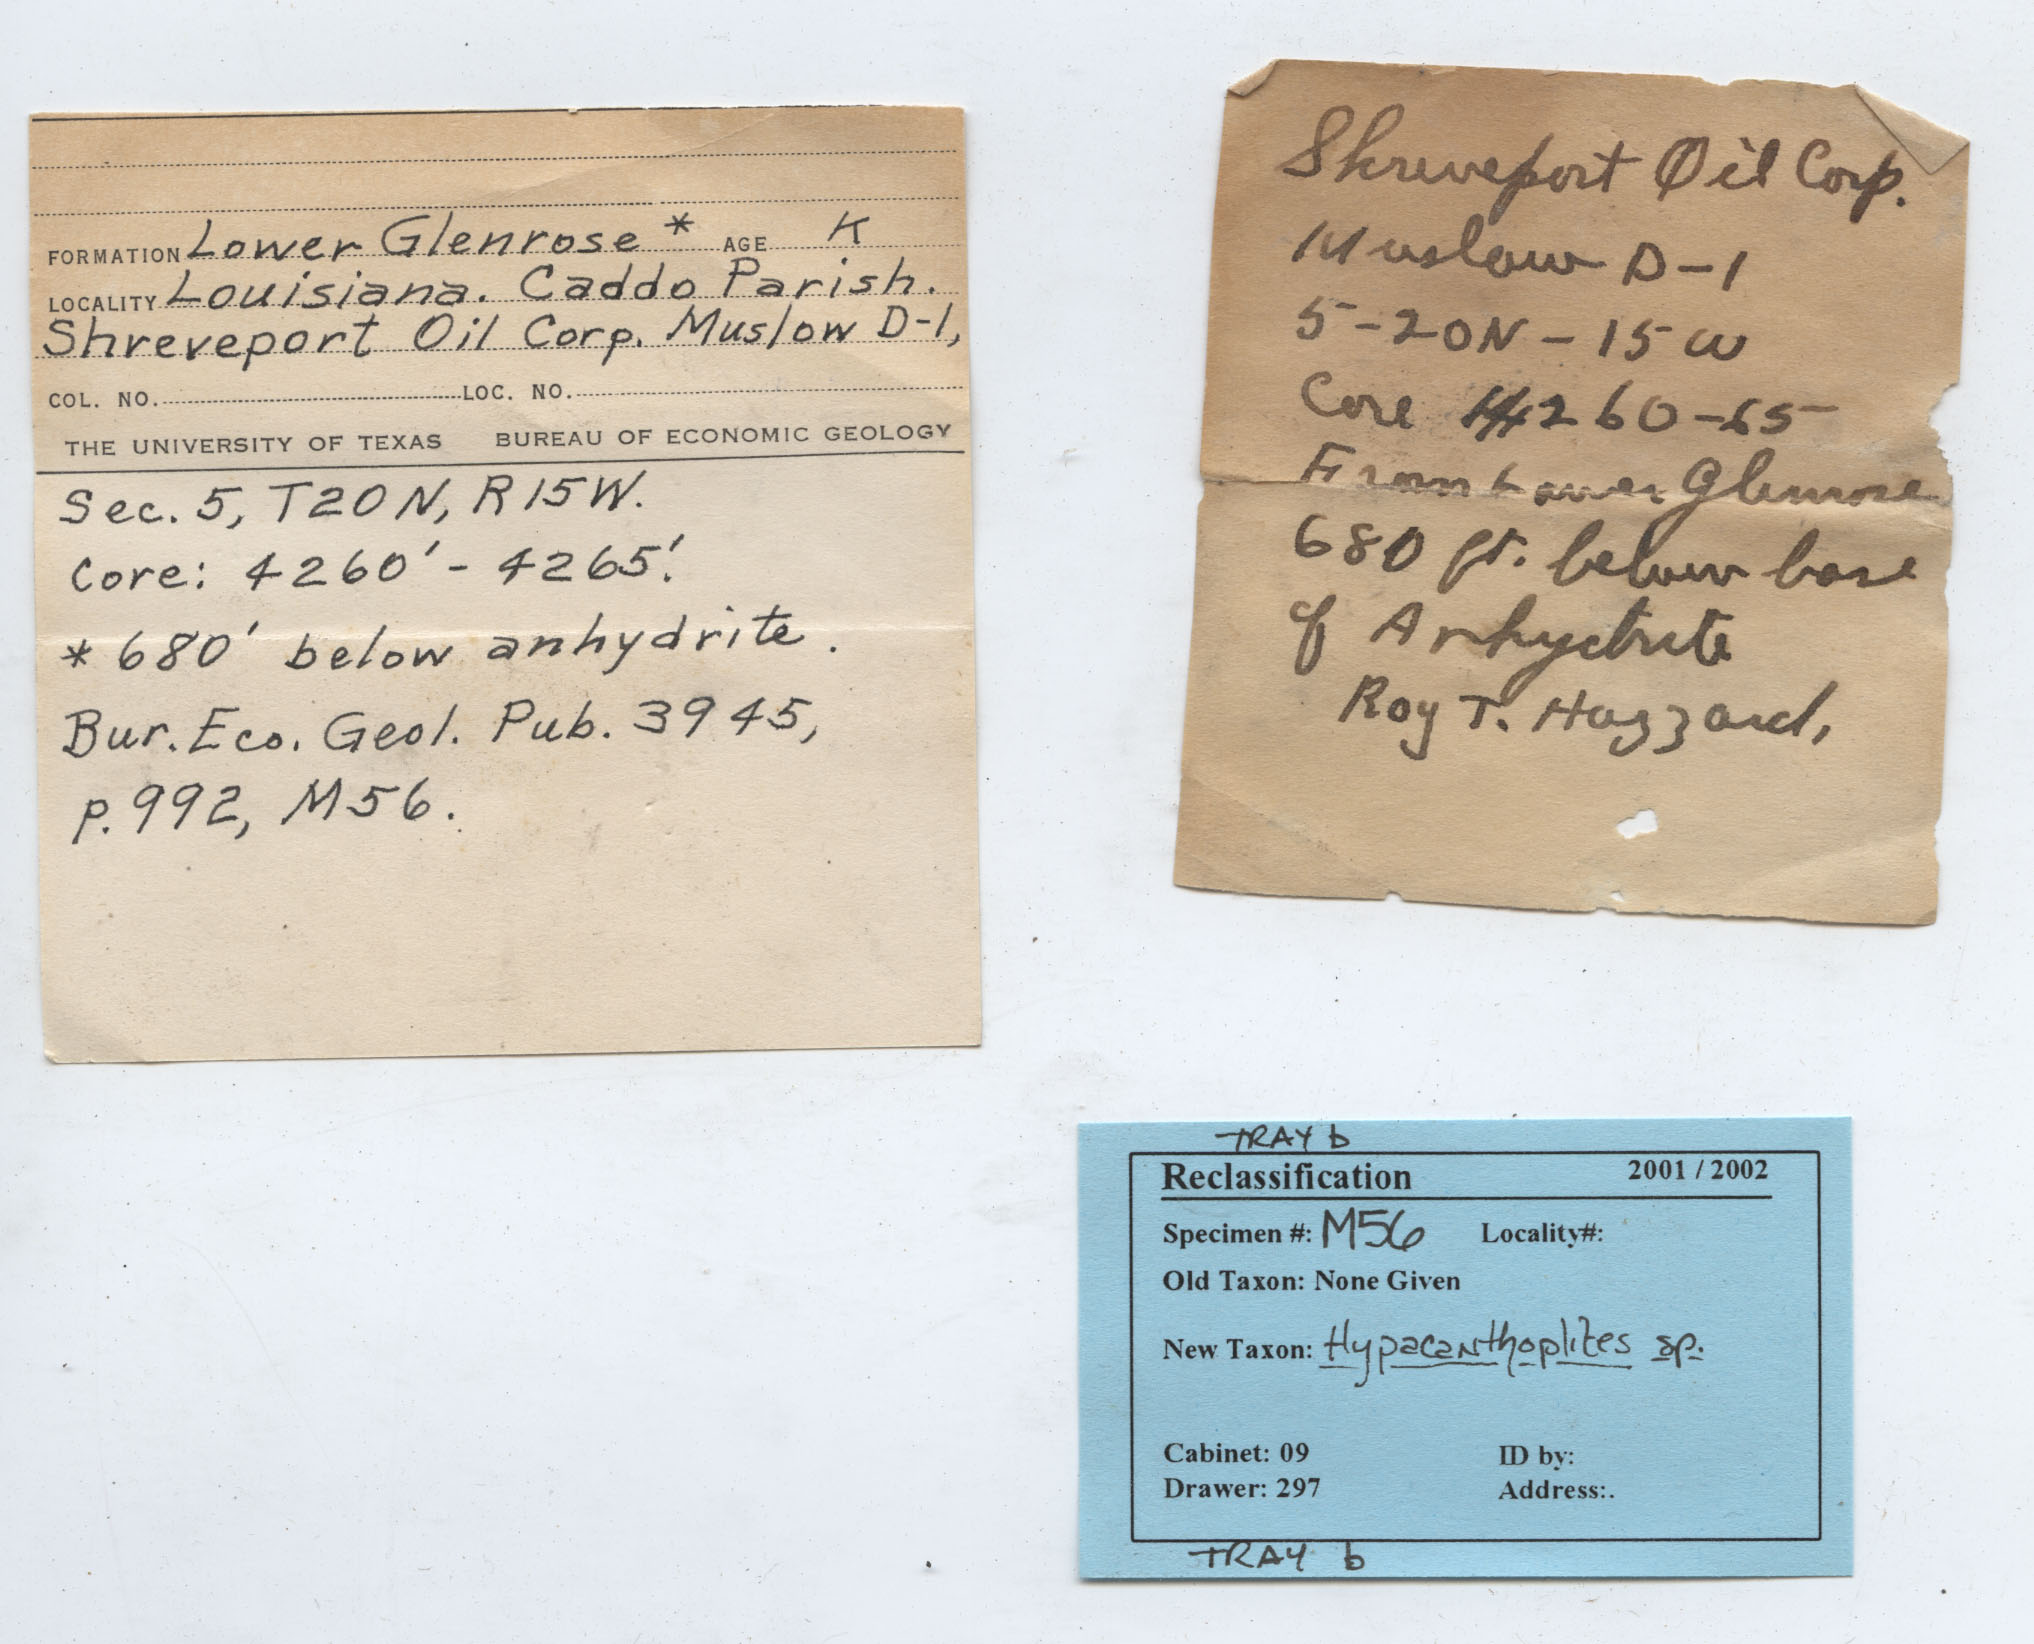 FORMATION Lower Glenrose * AGE K
LOCALITY Louisiana. Caddo Parish.
Shreveport Oil Corp. Muslow D-1,
COL. NO. LOC. NO.
THE UNIVERSITY OF TEXAS BUREAU OF ECONOMIC GEOLOGY
Sec. 5, T20N, R15W.
Core: 4260' - 4265'.
* 680' below anhydrite.
Bur. Eco. Geol. Pub. 3945,
p. 992, M56.
Shreveport Oil Corp.
Muslow D-1
5-20N-15W
Core 4260-65
From Lower Glenrose
680 ft. below base
of Anhydrite
Roy T. Hazzard,
TRAY b
Reclassification 2001 / 2002
Specimen #: M56 Locality#:
Old Taxon: None Given
New Taxon: Hypacanthoplites sp.
Cabinet: 09 ID by:
Drawer: 297 Address:.
TRAY b